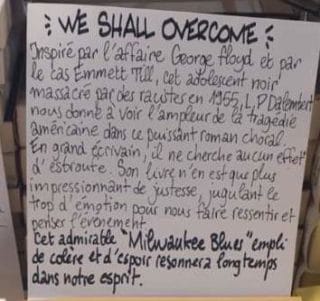 WE SHALL OVERCOME
Inspiré par l'affaire George Floyd et par
le cas Emmett Till, cet adolescent noir
massacré par des racistes en 1955, L.P Dalembert
nous donne à voir l'ampleur de la tragédie
américaine dans ce puissant roman choral.
En grand écrivain, il ne cherche aucun effet
d'estroute. Son livre n'en est que plus
impressionnant de justesse, jugulant le
trop d'émotion pour nous faire ressentir et
penser l'évènement.
Cet admirable "Milwaukee Blues" empli
de colère et d'espoir resonnera longtemps
dans notre esprit.